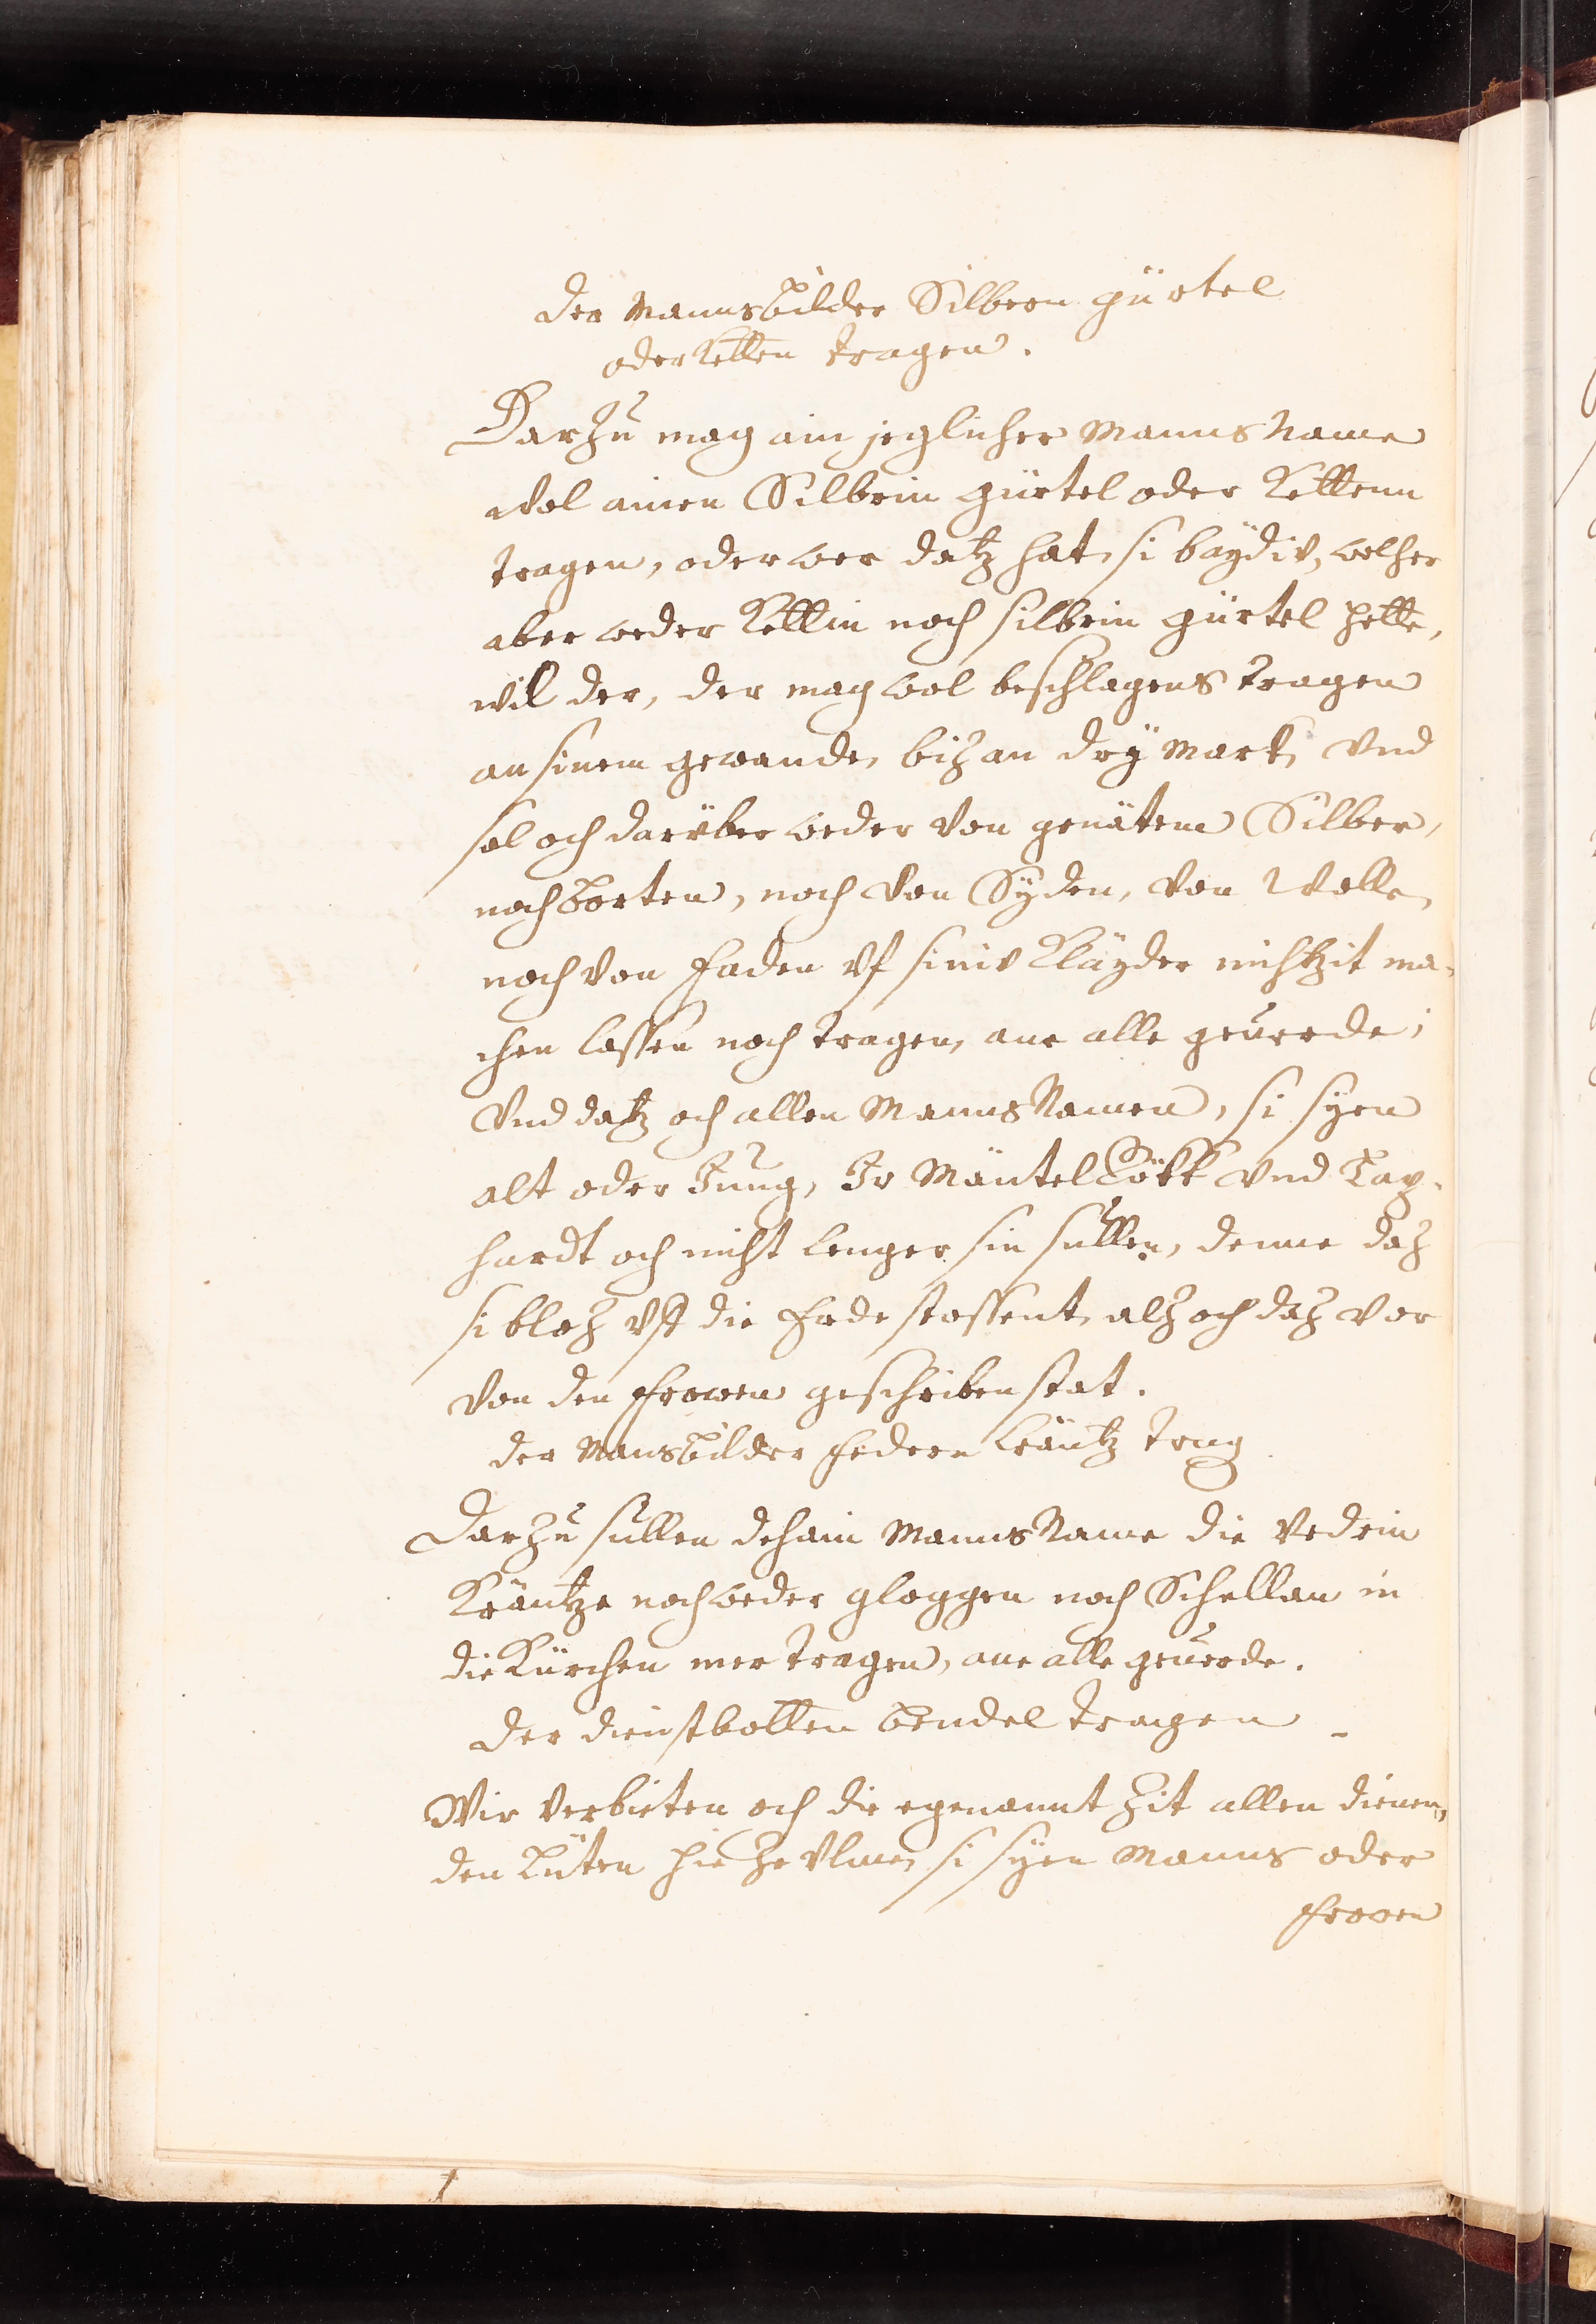 der Mannsbilder Silbern gürtel
oder Ketten tragen.
Darzu mag ain jeglicher Manns Name
wol ainen Silbrin gürtel oder Kettenn
tragen, oder wer datz hat, si baydiv, welher
aber weder Kettin noch silbrin gürtel hette,
wil der, der mag wol beschlagens tragen
an sinem gewande, biz an dry Mark, vnd
sol och darüber weder von genätem Silber,
noch Borten, noch von Syden, von Wolle,
noch von Faden vf siniv Klayder nichtzit ma-
chen lassen noch tragen, ane alle geuerde;
Vnd datz och allen Manns Namen, si syen
alt oder Jung, Ir Mäntel Rökk vnd Tap-
hardt och nicht lenger sin sullen, denne daz
si bloz vff die Erde stossent, alz och daz vor
von den Frowen geschriben stat.
der Mansbilder Federn Kräntz trag
Darzu sullen dehain Manns Name die vedrin
Kräntze noch weder gloggen noch Schellan in
die Kürchen mer tragen, ane alle geuerde.
Der dienstbotten Bendel tragen
Wir verbieten och die egenannt Zit allen dienen,
den Lüten hie ze Vlme, si syen Manns oder
Frowen